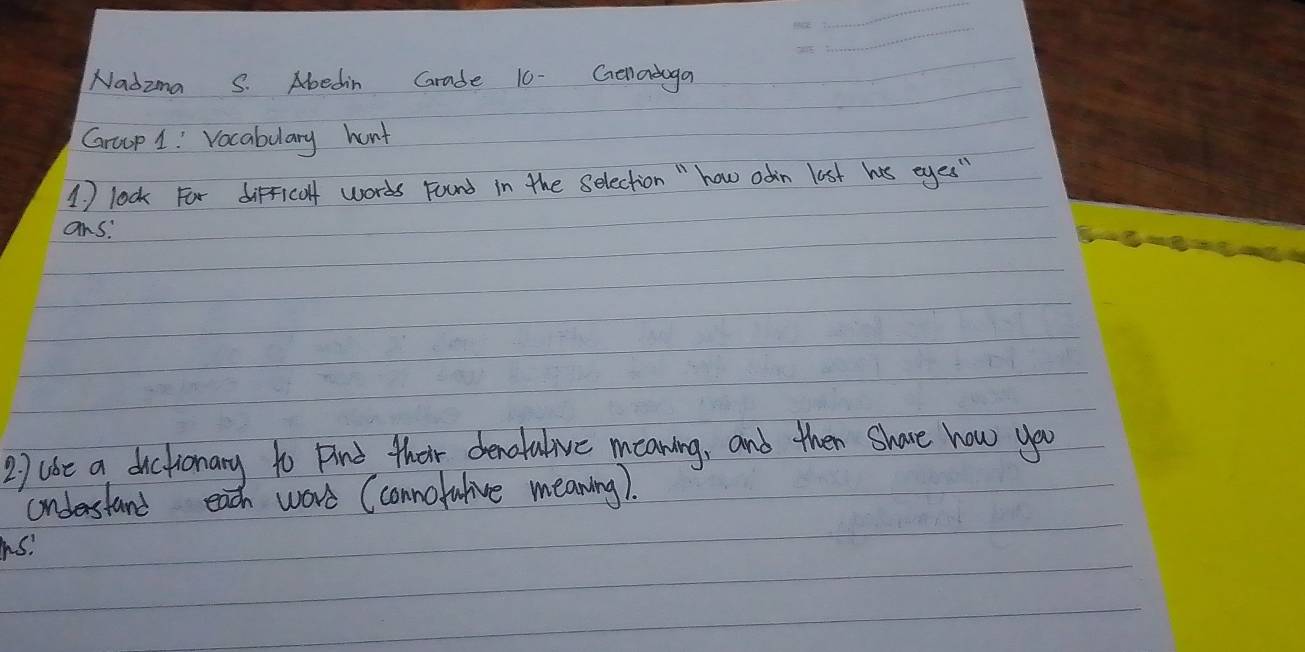 Nadzma S. Abedin Grade 10- Genaduga
Group 1: Vocabulary hunt
1.) look For difficult words Found in the Selection "how odin lost his eyes"
ans:
2.) use a dictionary to Find their denotative meaning, and then Share how you
understand each word (connotative meaning).
ns: